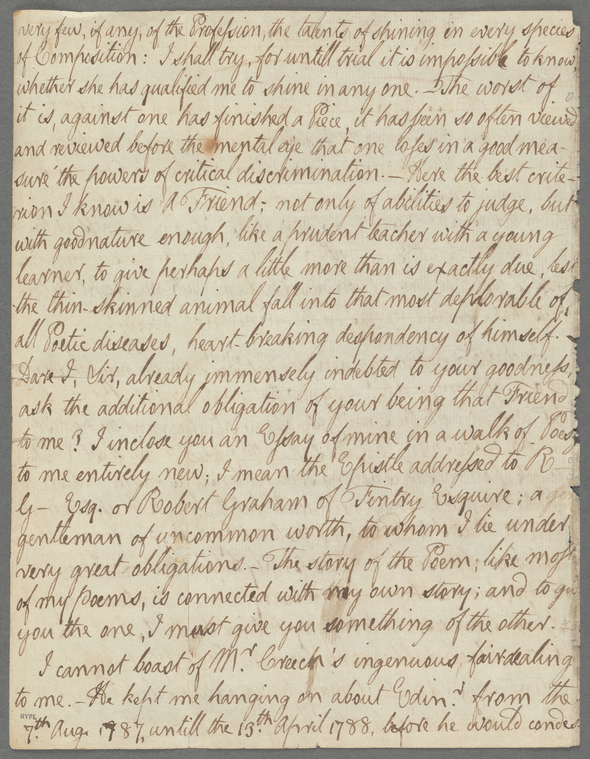 very few, if any, of the Profession, the talents of shining in every species
of Composition: I shall try, for untill trial it is impossible to know,
whether she has qualified me to shine in any one. – The worst of
it is, against one has finished a Piece, it has been so often viewed
and reviewed before the mental eye that one loses in a good mea-
sure the powers of critical discrimination. – Here the best crite-
rion I know is A Friend; not only of abilities to judge, but
with goodnature enough, like a prudent teacher with a young
learner, to give perhaps a little more than is exactly due, lest
the thin-skinned animal fall into that most deplorable of
all Poetic diseases, heart-breaking despondency of himself.
Dare I, Sir, already immensely indebted to your goodness,
ask the additional obligation of your being that Friend
to me? I inclose you an Essay of mine in a walk of Poesy
to me entirely new; I mean the Epistle addressed to R–
G– Esq. or Robert Graham of Fintry Esquire; a
gentleman of uncommon worth, to whom I lie under
very great obligations. – The story of the Poem, like most
of my Poems, is connected with my own story; and to give
you the one, I must give you something of the other. –
I cannot boast of Mr Creech's ingenuous, fairdealing
to me. – He kept me hanging on about Edinr from the
NYPL
7th Augt 1787, untill the 13th April 1788, before he would condes-